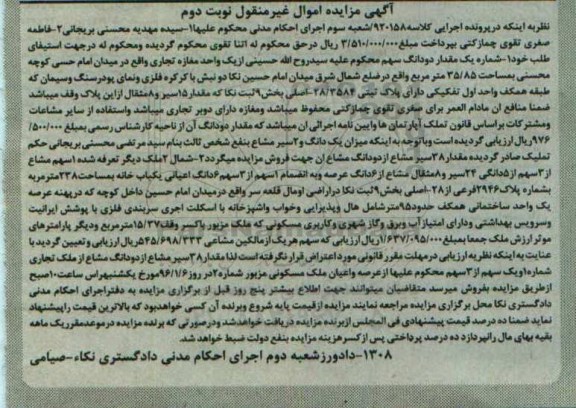 آگهی مزایده اموال غیرمنقول نوبت دوم
نظر به اینکه در پرونده اجرایی کلاسه ۹۲۰۱۵۸/شعبه سوم اجرای احکام مدنی محکوم علیها ۱-سیده مهدیه محسنی بریجانی ۲-فاطمه
صغری تقوی چمازکتی بپرداخت مبلغ ۳/۵۱۰/۰۰۰/۰۰۰ ریال درحق محکوم له اتنا تقوی محکوم گردیده ومحکوم له درجهت استیفای
طلب خود ۱-شماره یک مقدار دودانگ سهم محکوم علیه سیدروح الله حسینی ازیک واحد مغازه تجاری واقع در میدان امام حسی کوچه
محسنی بمساحت ۳۵/۸۵ متر مربع واقع در ضلع شمال شرق میدان امام حسین نکا دو نبش با کرکره فلزی ونمای پودرسنگ وسیمان که
طبقه همکف واحد اول تفکیکی دارای پلاک ثبتی ۲۸/۳۵۸۴-اصلی بخش ۹ ثبت نکا که مقدار ۱۵ سیر و ۸ مثقال ازاین پلاک وقف میباشد
ضمنا منافع ان مادام العمر برای صغری تقوی چمازکتی محفوظ میباشد ومغازه دارای دوبر تجاری میباشد واستفاده از سایر مشاعات
ومشترکات براساس قانون تملک آپارتمان ها وایین نامه اجرائی ان میباشد که مقدار دودانگ آن از ناحیه کارشناس رسمی بمبلغ ۵۰۰/۰۰۰/
۹۷۶ ریال ارزیابی گردیده است وباتوجه به اینکه میزان یک دانگ و۲سیر مشاع بنفع شخص ثالث بنام سید مرتضی محسنی بریجانی حکم
تملیک صادر گردیده مقدار ۳۸ سیر مشاع ازدودانگ مشاع ان جهت فروش مزایده میگردد ۲-شمال ۲ملک دیگر تعرفه شده ۱سهم مشاع
از ۳سهم از ۵دانگی ۲۴سیر و۸مثقال مشاع از ۶دانگ عرصه وبه انضمام ۱سهم از ۳سهم ۶دانگ اعیانی یکباب خانه بمساحت ۲۳۸مترمربع
بشماره پلاک ۲۹۴۶فرعی از ۲۸-اصلی بخش ۹ ثبت نکا در اراضی اومال قلعه سر واقع درمیدان امام حسین داخل کوچه که درپهنه عرصه
یک واحد ساختمانی همکف حدود ۹۵مترشامل هال وپذیرایی وخواب واشپزخانه با اسکلت اجری سربندی فلزی با پوشش ایرانیت
وسرویس بهداشتی ودارای امتیاز آب وبرق وگاز شهری وکاربری مسکونی که ملک مزبور باکسر وقف ۱۵/۳۷مترمربع ودیگر پارامترهای
موثر ارزش ملک جمعا بمبلغ ۱/۶۳۷/۰۹۵/۰۰۰ریال ارزیابی که سهم هریک ازمالکین مشاعی ۵۴۵/۶۹۸/۳۳۳ریال ارزیابی وتعیین گردید با
عنایت به اینکه نظریه ارزیابی درمهلت مقرر قانونی مورداعتراض قرار نگرفته است لذا مقدار ۳۸سیر مشاع ازدودانگ مشاع از ملک تجاری
شماره ۱ویک سهم از ۳سهم محکوم علیها ازعرصه واعیان ملک مسکونی مزبور شماره ۲در روز ۹۶/۱/۶مورخ یکشنبه راس ساعت ۱۰صبح
ازطریق مزایده بفروش میرسد متقاضیان میتوانند جهت اطلاع بیشتر پنج روز قبل از برگزاری مزایده به دفتراجرای احکام مدنی
دادگستری نکا محل برگزاری مزایده مراجعه نمایند مزایده ازقیمت پایه شروع وبرنده آن کسی خواهدبود که بالاترین قیمت راپیشنهاد
نماید ضمنا ده درصد قیمت پیشنهادی فی المجلس ازبرنده مزایده دریافت خواهدشد ودرصورتی که برنده مزایده درموعدمقرریک ماهه
بقیه بهای مال رانپردازد ده درصد پرداختی پس ازکسرهزینه مزایده بنفع دولت ضبط خواهد شد.
۱۳۰۸-دادورز شعبه دوم اجرای احکام مدنی دادگستری نکاء-صیامی